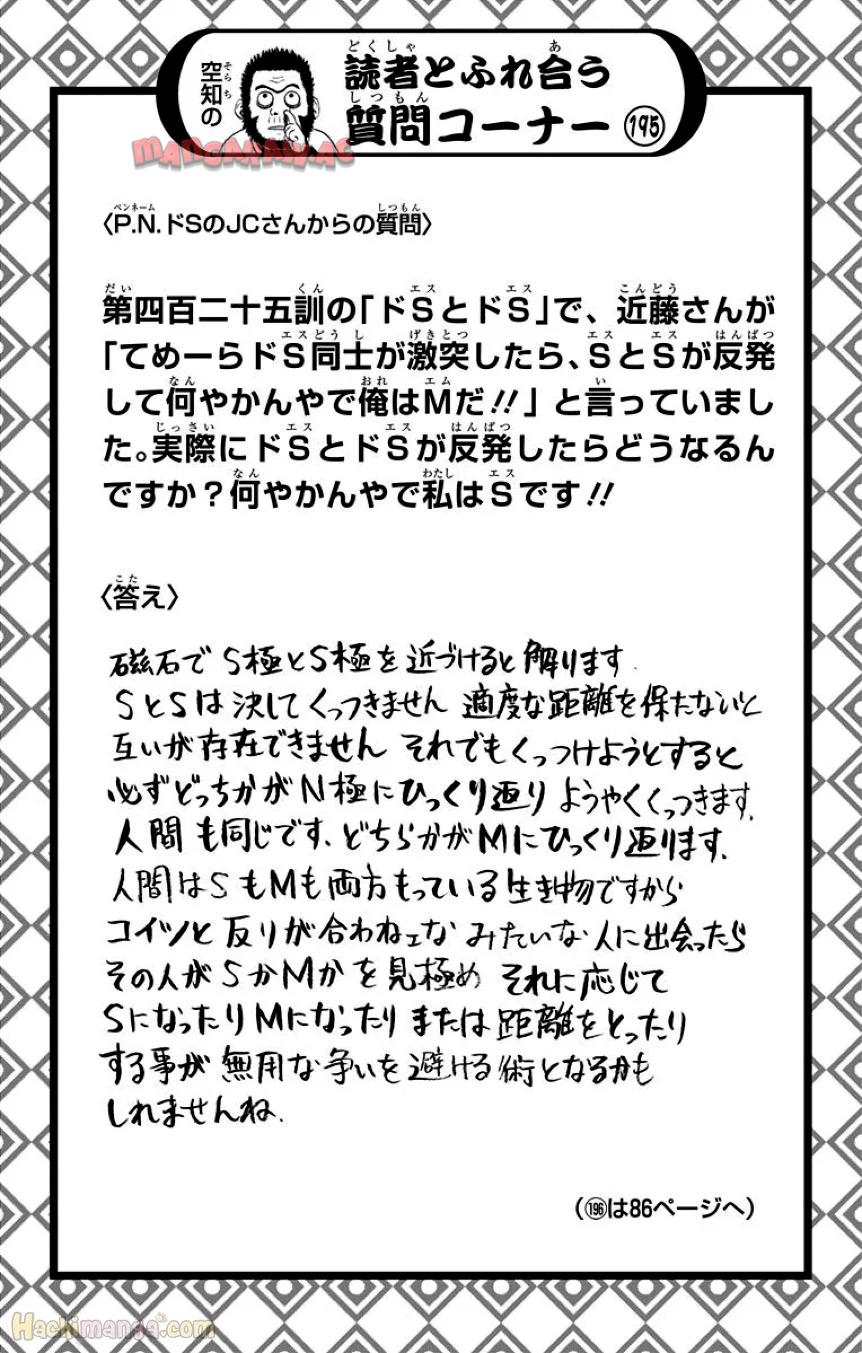 空知の
読者とふれ合う
質問コーナー 195
MANGARAW.AC
〈P.N.ドSのJCさんからの質問〉
第四百二十五訓の「ドSとドS」で、近藤さんが
「てめーらドS同士が激突したら、SとSが反発
して何やかんやで俺はMだ!!」と言っていまし
た。実際にドSとドSが反発したらどうなるん
ですか?何やかんやで私はSです!!
〈答え〉
磁石でS極とS極を近づけると解ります.
SとSは決してくっつきません 適度な距離を保たないと
互いが存在できません それでもくっつけようとすると
必ずどっちかがN極にひっくり返り ようやくくっつきます.
人間も同じです.どちらかがMにひっくり返ります.
人間はSもMも両方もっている生き物ですから
コイツと反りが合わねェな みたいな人に出会ったら
その人がSかMかを見極め それに応じて
SになったりMになったり または距離をとったり
する事が無用な争いを避ける術となるかも
しれませんね.
(196は86ページへ)
Hachimanga.com